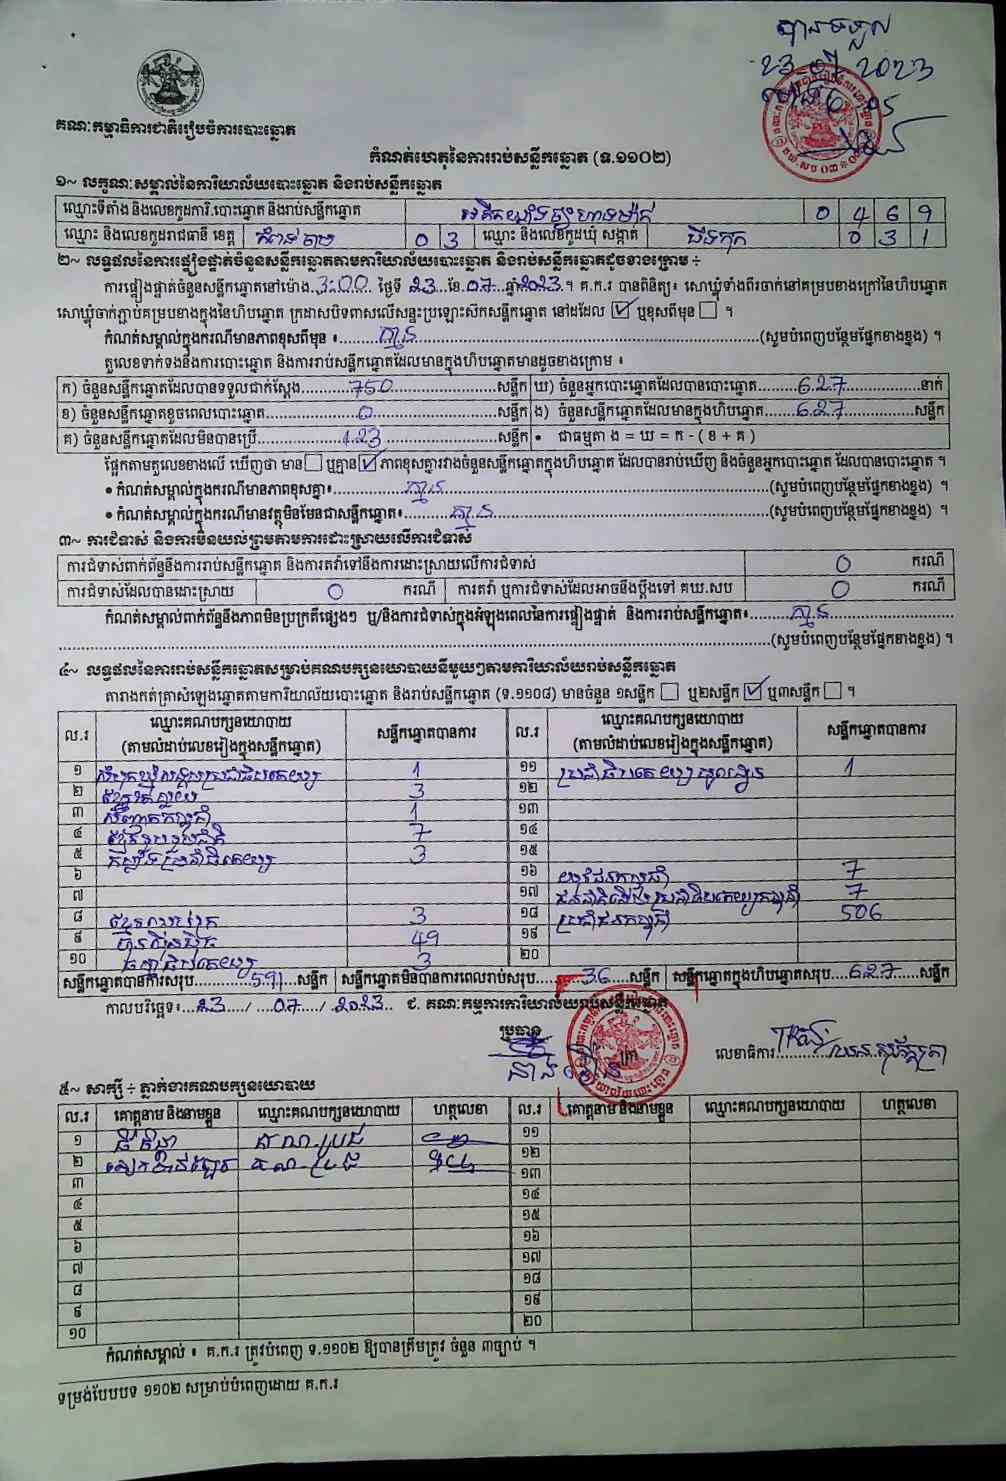 បានទទួល
23 2023
គណៈកម្មាធិការជាតិរៀបចំការបោះឆ្នោត
កំណត់ហេតុនៃការរាប់សន្លឹកឆ្នោត (ទ.១១០២)
១~ លក្ខណៈសម្គាល់នៃការិយាល័យបោះឆ្នោត និងរាប់សន្លឹកឆ្នោត
ឈ្មោះទីតាំង និងលេខកូដការិ.បោះឆ្នោត និងរាប់សន្លឹកឆ្នោត 0 4 6 9
ឈ្មោះ និងលេខកូដរាជធានី ខេត្ត កំពង់ចាម 0 3 ឈ្មោះ និងលេខកូដឃុំ សង្កាត់ 0 3 1
២~ លទ្ធផលនៃការផ្ទៀងផ្ទាត់ចំនួនសន្លឹកឆ្នោតតាមការិយាល័យបោះឆ្នោត និងរាប់សន្លឹកឆ្នោតដូចខាងក្រោម ÷
ការផ្ទៀងផ្ទាត់ចំនួនសន្លឹកឆ្នោតនៅម៉ោង 3:00 ថ្ងៃទី 23 ខែ 07 ឆ្នាំ 2023 ។ គ.ក.រ បានពិនិត្យ៖ សោឃ្មុំទាំងពីរចាក់នៅគម្របខាងក្រៅនៃហិបឆ្នោត
សោឃ្មុំចាក់ភ្ជាប់គម្របខាងក្នុងនៃហិបឆ្នោត ក្រដាសបិទពាសលើសន្ទះប្រឡោះស៊កសន្លឹកឆ្នោត នៅដដែល ☑ ឬខុសពីមុន ☐ ។
កំណត់សម្គាល់ក្នុងករណីមានភាពខុសពីមុន ៖ គ្មាន (សូមបំពេញបន្ថែមផ្នែកខាងខ្នង) ។
តួលេខទាក់ទងនឹងការបោះឆ្នោត និងការរាប់សន្លឹកឆ្នោតដែលមានក្នុងហិបឆ្នោតមានដូចខាងក្រោម ៖
ក) ចំនួនសន្លឹកឆ្នោតដែលបានទទួលជាក់ស្តែង 750 សន្លឹក ឃ) ចំនួនអ្នកបោះឆ្នោតដែលបានបោះឆ្នោត 627 នាក់
ខ) ចំនួនសន្លឹកឆ្នោតខូចពេលបោះឆ្នោត 0 សន្លឹក ង) ចំនួនសន្លឹកឆ្នោតដែលមានក្នុងហិបឆ្នោត 627 សន្លឹក
គ) ចំនួនសន្លឹកឆ្នោតដែលមិនបានប្រើ 123 សន្លឹក • ជាធម្មតា ង = ឃ = ក - ( ខ + គ )
ផ្អែកតាមតួលេខខាងលើ ឃើញថា មាន ☐ ឬគ្មាន ☑ ភាពខុសគ្នារវាងចំនួនសន្លឹកឆ្នោតក្នុងហិបឆ្នោត ដែលបានរាប់ឃើញ និងចំនួនអ្នកបោះឆ្នោត ដែលបានបោះឆ្នោត ។
• កំណត់សម្គាល់ក្នុងករណីមានភាពខុសគ្នា៖ គ្មាន (សូមបំពេញបន្ថែមផ្នែកខាងខ្នង) ។
• កំណត់សម្គាល់ក្នុងករណីមានវត្ថុមិនមែនជាសន្លឹកឆ្នោត៖ គ្មាន (សូមបំពេញបន្ថែមផ្នែកខាងខ្នង) ។
៣~ ការជំទាស់ និងការមិនយល់ព្រមតាមការដោះស្រាយលើការជំទាស់
ការជំទាស់ពាក់ព័ន្ធនឹងការរាប់សន្លឹកឆ្នោត និងការតវ៉ាទៅនឹងការដោះស្រាយលើការជំទាស់ 0 ករណី
ការជំទាស់ដែលបានដោះស្រាយ 0 ករណី ការតវ៉ា ឬការជំទាស់ដែលអាចនឹងប្តឹងទៅ គឃ.សប 0 ករណី
កំណត់សម្គាល់ពាក់ព័ន្ធនឹងភាពមិនប្រក្រតីផ្សេងៗ ឬ/និងការជំទាស់ក្នុងអំឡុងពេលនៃការផ្ទៀងផ្ទាត់ និងការរាប់សន្លឹកឆ្នោត៖ គ្មាន
(សូមបំពេញបន្ថែមផ្នែកខាងខ្នង) ។
៤~ លទ្ធផលនៃការរាប់សន្លឹកឆ្នោតសម្រាប់គណបក្សនយោបាយនីមួយៗតាមការិយាល័យរាប់សន្លឹកឆ្នោត
តារាងកត់ត្រាសំឡេងឆ្នោតតាមការិយាល័យបោះឆ្នោត និងរាប់សន្លឹកឆ្នោត (ទ.១១០៨) មានចំនួន ១សន្លឹក ☐ ឬ២សន្លឹក ☑ ឬ៣សន្លឹក ☐ ។
ល.រ ឈ្មោះគណបក្សនយោបាយ (តាមលំដាប់លេខរៀងក្នុងសន្លឹកឆ្នោត) សន្លឹកឆ្នោតបានការ ល.រ ឈ្មោះគណបក្សនយោបាយ (តាមលំដាប់លេខរៀងក្នុងសន្លឹកឆ្នោត) សន្លឹកឆ្នោតបានការ
១ សំបុកឃ្មុំសង្គមប្រជាធិបតេយ្យ 1 ១១ 1
២ 3 ១២
៣ 1 ១៣
៤ ខ្មែររួបរួមជាតិ 7 ១៤
៥ 3 ១៥
៦ ១៦ យុវជនកម្ពុជា 7
៧ ១៧ ជនជាតិដើមប្រជាធិបតេយ្យកម្ពុជា 7
៨ 3 ១៨ ប្រជាជនកម្ពុជា 506
៩ ហ៊្វុនស៊ិនប៉ិច 49 ១៩
១០ 3 ២០
សន្លឹកឆ្នោតបានការសរុប 591 សន្លឹក សន្លឹកឆ្នោតមិនបានការពេលរាប់សរុប 36 សន្លឹក សន្លឹកឆ្នោតក្នុងហិបឆ្នោតសរុប 627 សន្លឹក
កាលបរិច្ឆេទ៖ 23 / 07 / 2023 ជ. គណៈកម្មការការិយាល័យរាប់សន្លឹកឆ្នោត
ប្រធាន
លេខាធិការ
៥~ សាក្សី ÷ ភ្នាក់ងារគណបក្សនយោបាយ
ល.រ គោត្តនាម និងនាមខ្លួន ឈ្មោះគណបក្សនយោបាយ ហត្ថលេខា ល.រ គោត្តនាម និងនាមខ្លួន ឈ្មោះគណបក្សនយោបាយ ហត្ថលេខា
១ ១១
២ ១២
៣ ១៣
៤ ១៤
៥ ១៥
៦ ១៦
៧ ១៧
៨ ១៨
៩ ១៩
១០ ២០
កំណត់សម្គាល់ ៖ គ.ក.រ ត្រូវបំពេញ ទ.១១០២ ឱ្យបានត្រឹមត្រូវ ចំនួន ៣ច្បាប់ ។
ទម្រង់បែបបទ ១១០២ សម្រាប់បំពេញដោយ គ.ក.រ